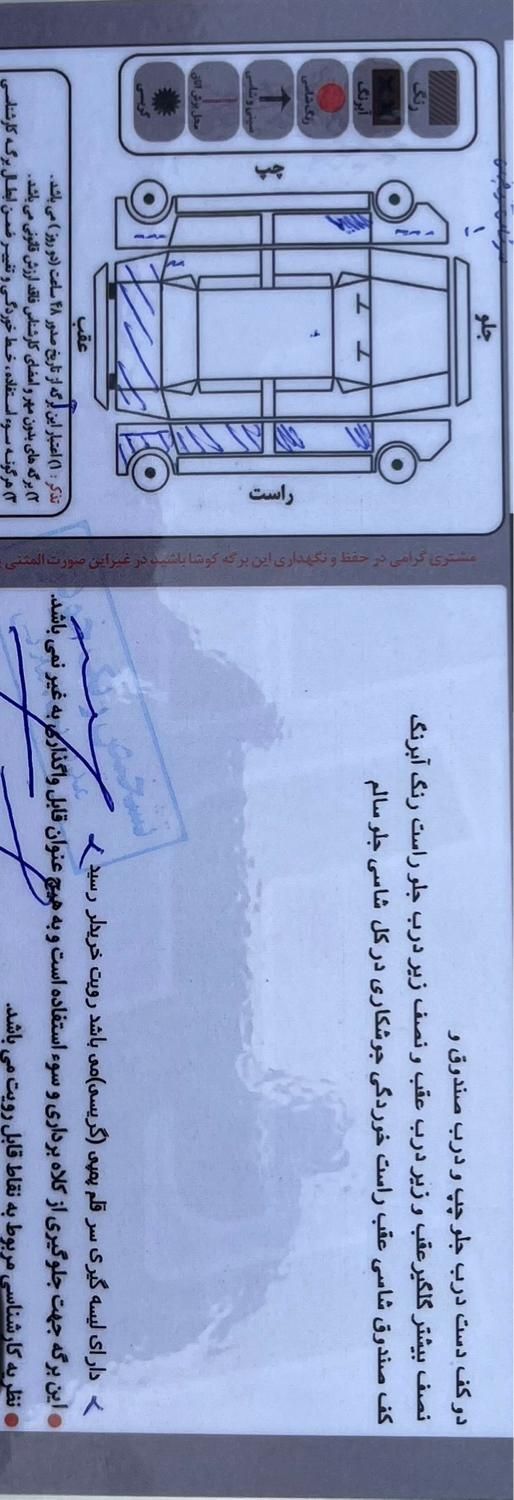 رنگ
آبرنگ
رنگ شاسی
سینی و شاسی
محل برش اتاق
گریسی
جلو
چپ
راست
عقب
تذکر : ۱) اعتبار این برگه از تاریخ صدور ۴۸ ساعت (دو روز) می باشد.
۲) برگه های بدون مهر و امضای کارشناس فاقد ارزش قانونی می باشد.
۳) هرگونه سوء استفاده، خط خوردگی و تغییر ضمن ابطال برگه کارشناسی
مشتری گرامی در حفظ و نگهداری این برگه کوشا باشید در غیراین صورت المثنی
دو کف دست درب جلو چپ و درب صندوق و
نصف بیشتر گلگیر عقب و زیر درب عقب و نصف زیر درب جلو راست رنگ آبرنگ
کف صندوق شاسی عقب راست خوردگی جوشکاری در کل شاسی جلو سالم
دارای لیسه گیری سر قلم پمپی (گریسی)می باشد رویت خریدار رسید
این برگه جهت جلوگیری از کلاه برداری و سوء استفاده است و به هیچ عنوان قابل واگذاری به غیر نمی باشد.
نظریه کارشناسی مربوط به نقاط قابل رویت می باشد.